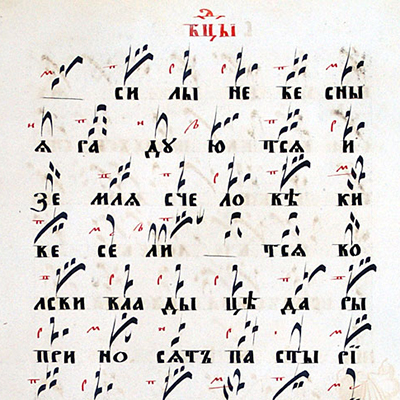 СИ ЛЫ НЕ БЕ СНЫ
Я РА ДУ Ю ТСЯ И
ЗЕ МЛЯ СЧЕ ЛО ВѢ КИ
ВЕ СЕ ЛИ ТСЯ ВО
ЛСВИ ВЛА ДЫ ЦѢ ДА РЫ
ПРИ НО СЯТЪ ПА СТЫ РЇ